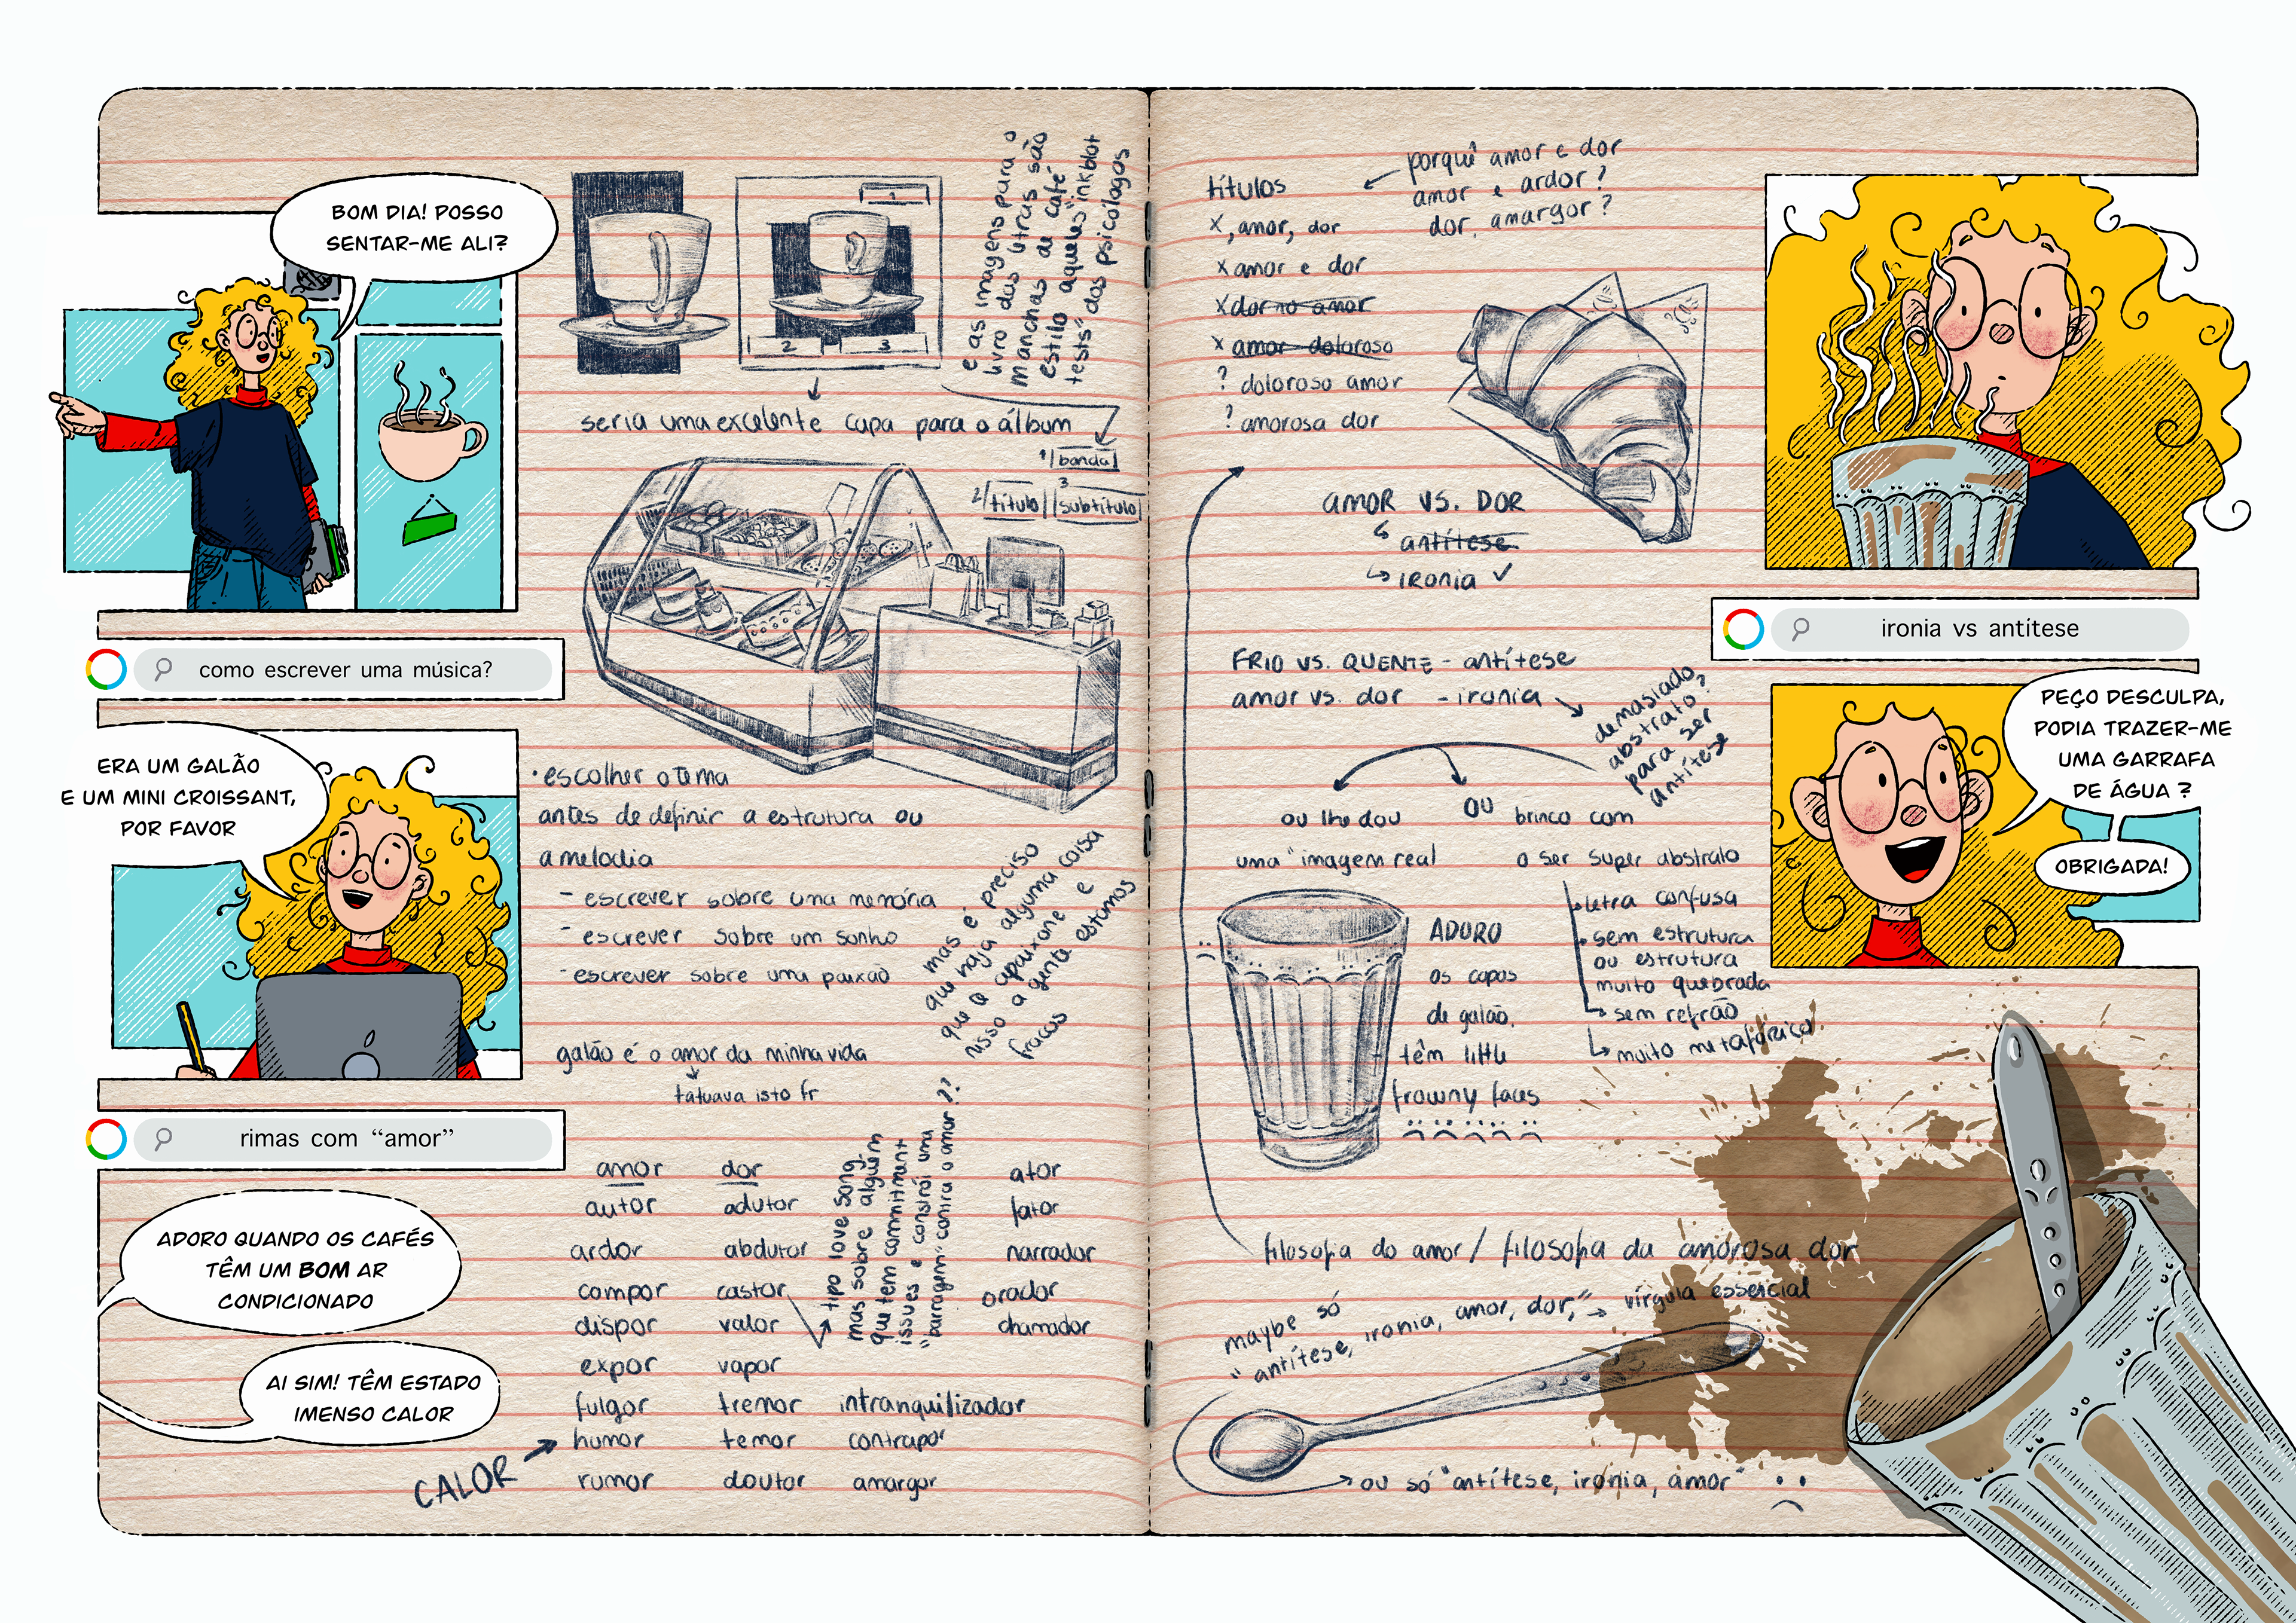 BOM DIA! POSSO
SENTAR-ME ALI?
como escrever uma música?
ERA UM GALÃO
E UM MINI CROISSANT,
POR FAVOR
rimas com “amor”
ADORO QUANDO OS CAFÉS
TÊM UM BOM AR
CONDICIONADO
AI SIM! TÊM ESTADO
IMENSO CALOR
CALOR
1
2
3
e as imagens para o
livro das letras são
manchas de café
estilo aqueles "inkblot
tests" dos psicólogos
seria uma excelente capa para o álbum
1/ banda
2/ título
3 subtítulo
• escolher o tema
antes de definir a estrutura ou
a melodia
- escrever sobre uma memória
- escrever sobre um sonho
- escrever sobre uma paixão
mas é preciso
que haja alguma coisa
que a apaixone e
nisso a gente estamos
fracos
galão é o amor da minha vida
tatuava isto fr
amor dor ator
autor adutor fator
ardor abdutor narrador
compor castor orador
dispor valor chamador
expor vapor
fulgor tremor intranquilizador
humor temor contrapor
rumor doutor amargor
tipo love song
mas sobre alguém
que tem commitment
issues e constrói uma
"barragem" contra o amor??
títulos
x, amor, dor
x amor e dor
x dor no amor
x amor doloroso
? doloroso amor
? amorosa dor
porquê amor e dor
amor e ardor?
dor, amargor?
AMOR VS. DOR
antítese
ironia ✓
FRIO VS. QUENTE - antítese
amor vs. dor - ironia
demasiado
abstrato?
para ser
antítese
ou lhe dou
uma "imagem real
ou
brinco com
o ser super abstrato
letra confusa
sem estrutura
ou estrutura
muito quebrada
sem refrão
muito metafórico
ADORO
os copos
de galão,
têm little
frowny faces
filosofia do amor / filosofia da amorosa dor
maybe só
"antítese, ironia, amor, dor," → vírgula essencial
ou só "antítese, ironia, amor"
ironia vs antítese
PEÇO DESCULPA,
PODIA TRAZER-ME
UMA GARRAFA
DE ÁGUA ?
OBRIGADA!